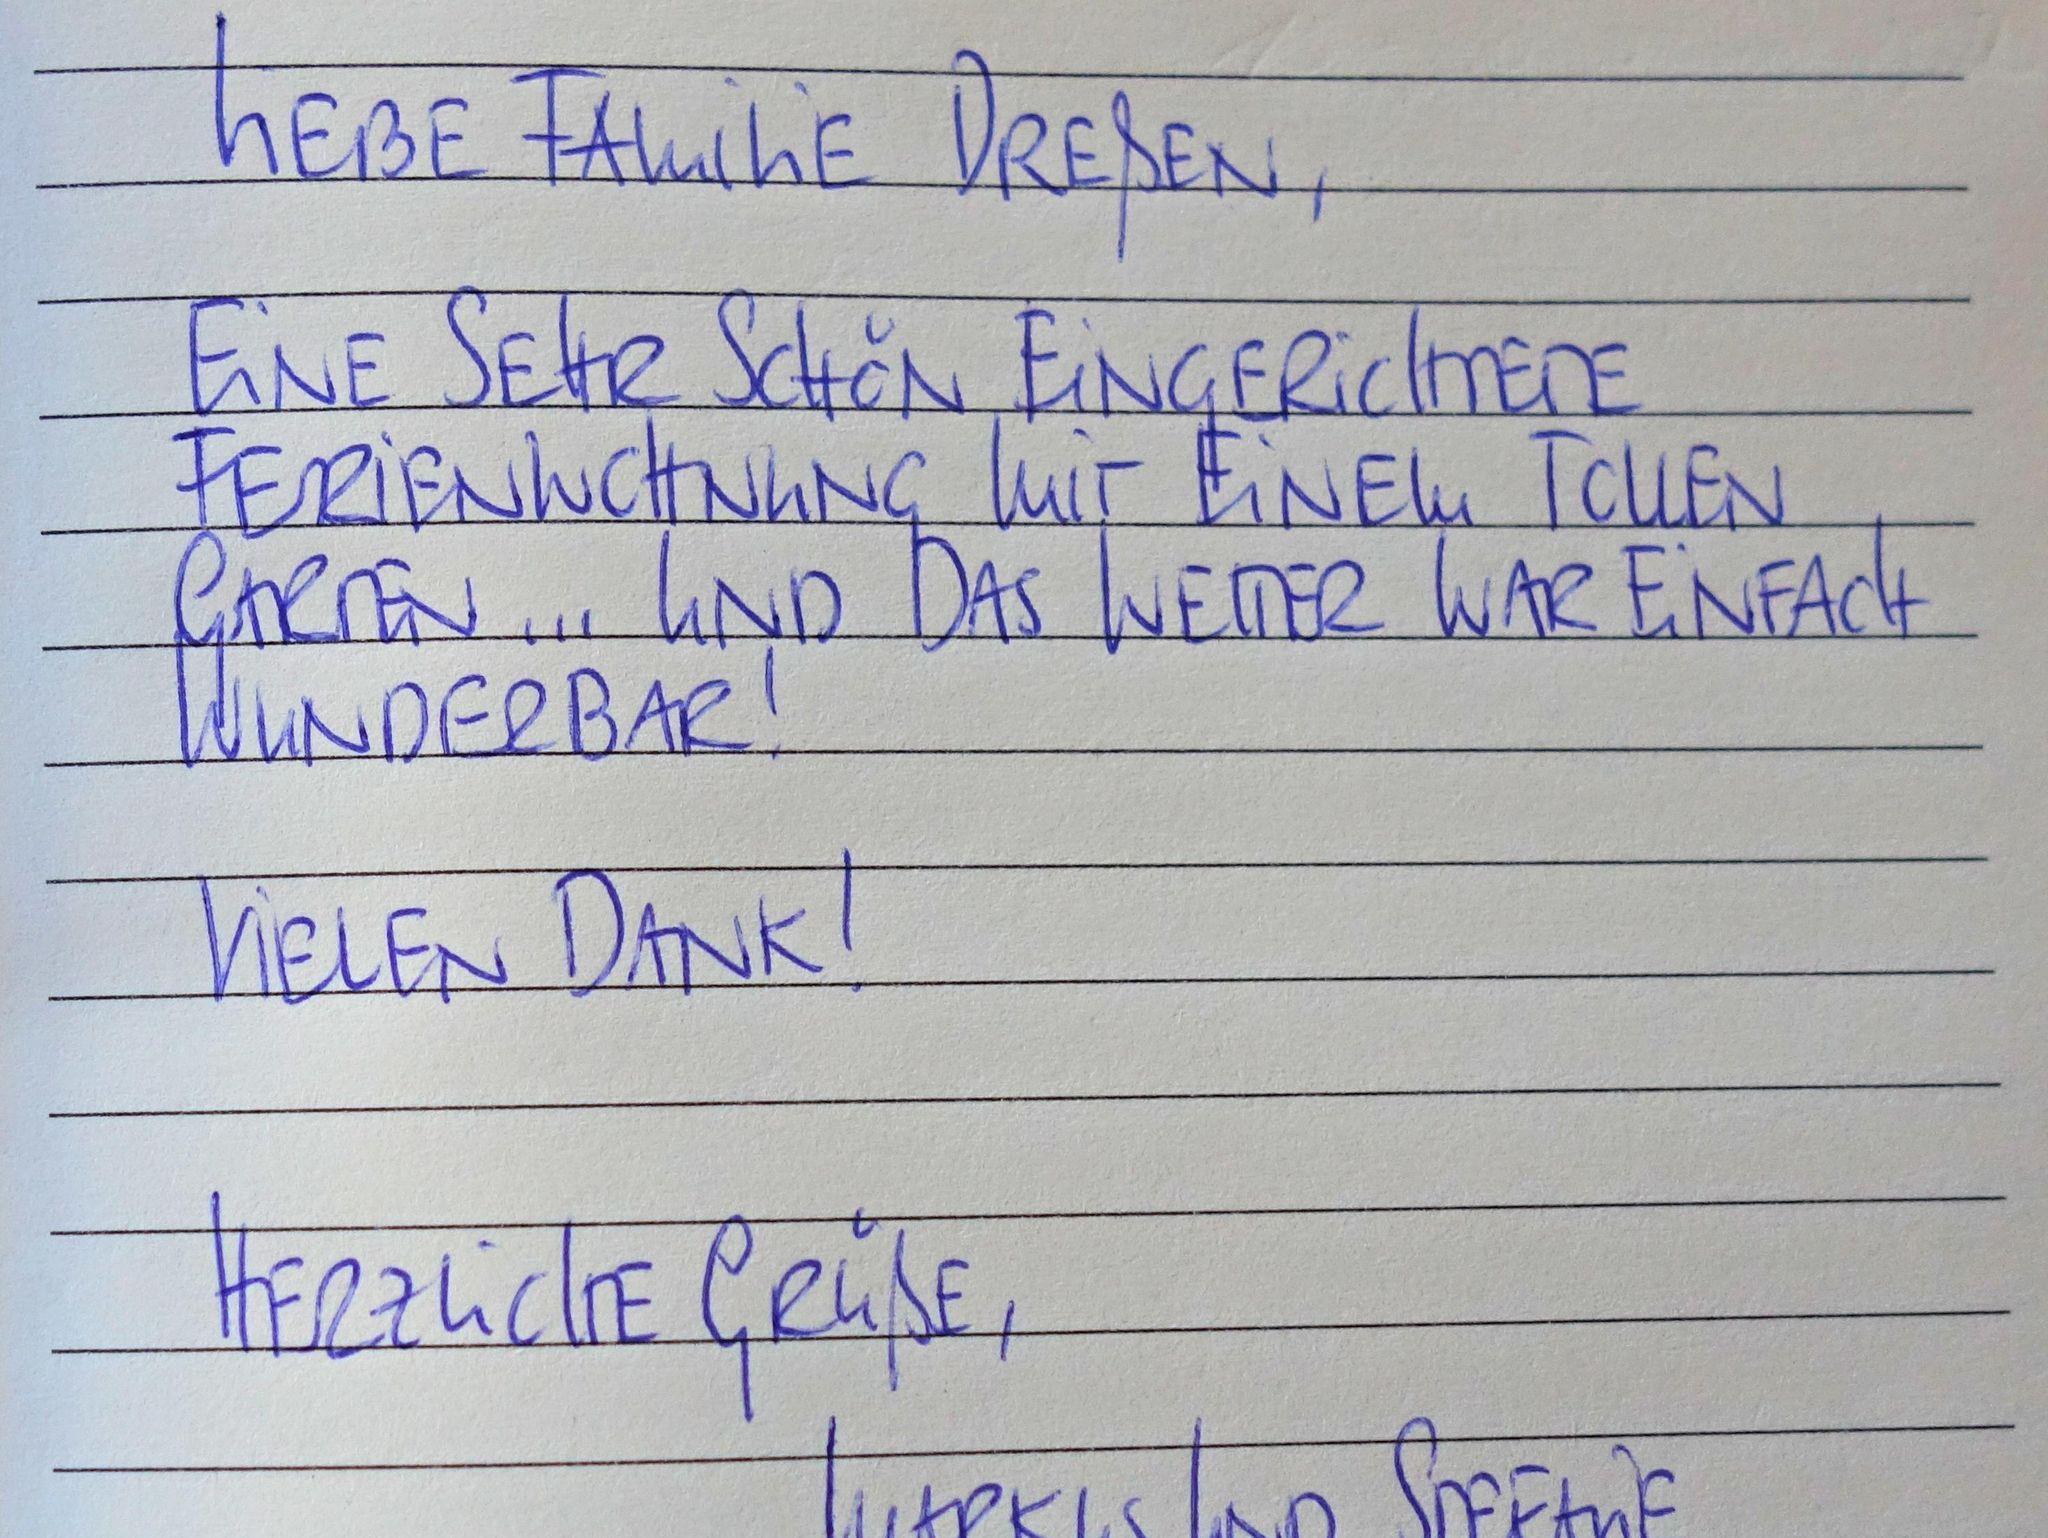 LIEBE FAMILIE DREßEN,
EINE SEHR SCHÖN EINGERICHTETE
FERIENWOHNUNG MIT EINEM TOLLEN
GARTEN... UND DAS WETTER WAR EINFACH
WUNDERBAR!
VIELEN DANK!
HERZLICHE GRÜßE,
MARKUS UND STEFANIE